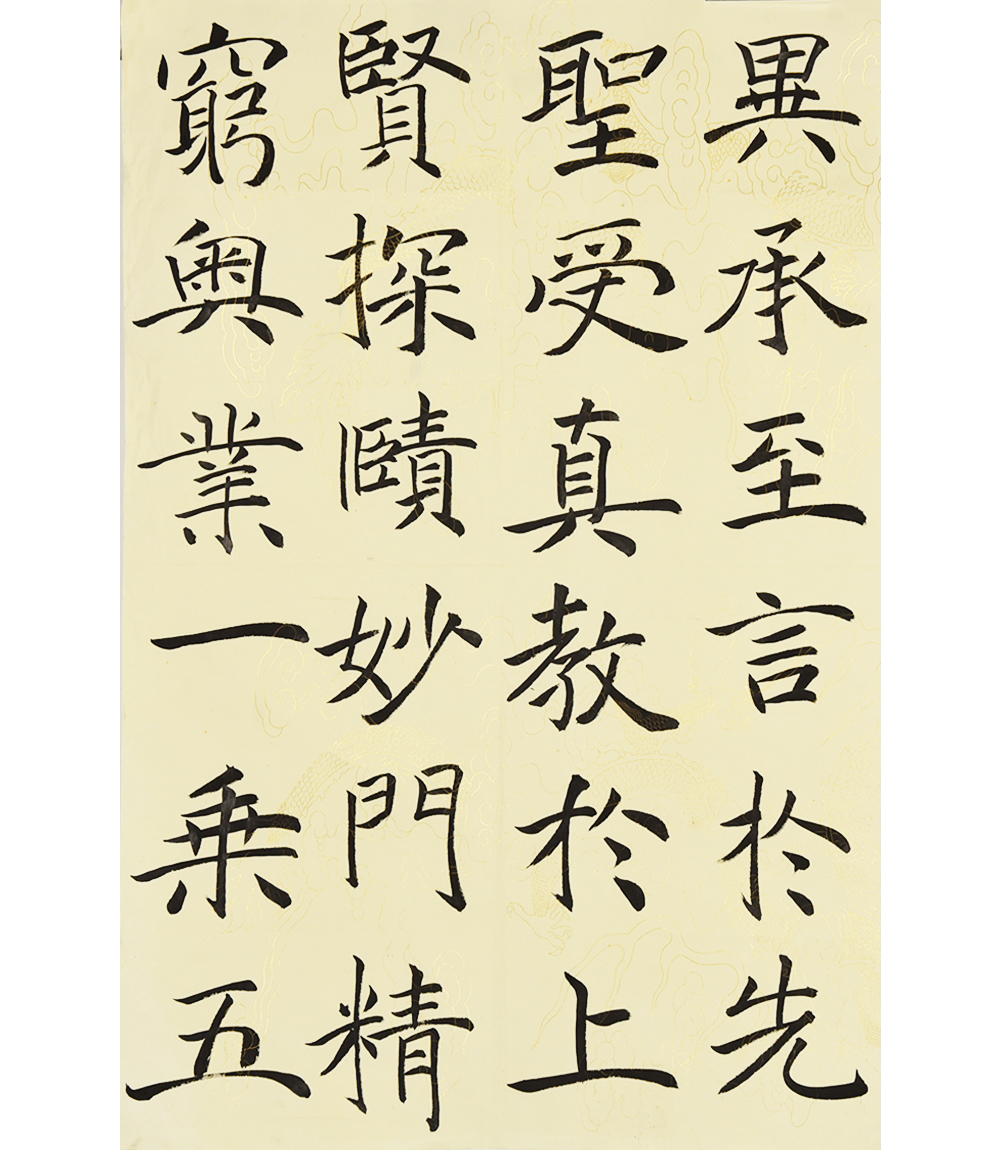 異承至言於先
聖受真教於上
賢探賾妙門精
窮奧業一乗五